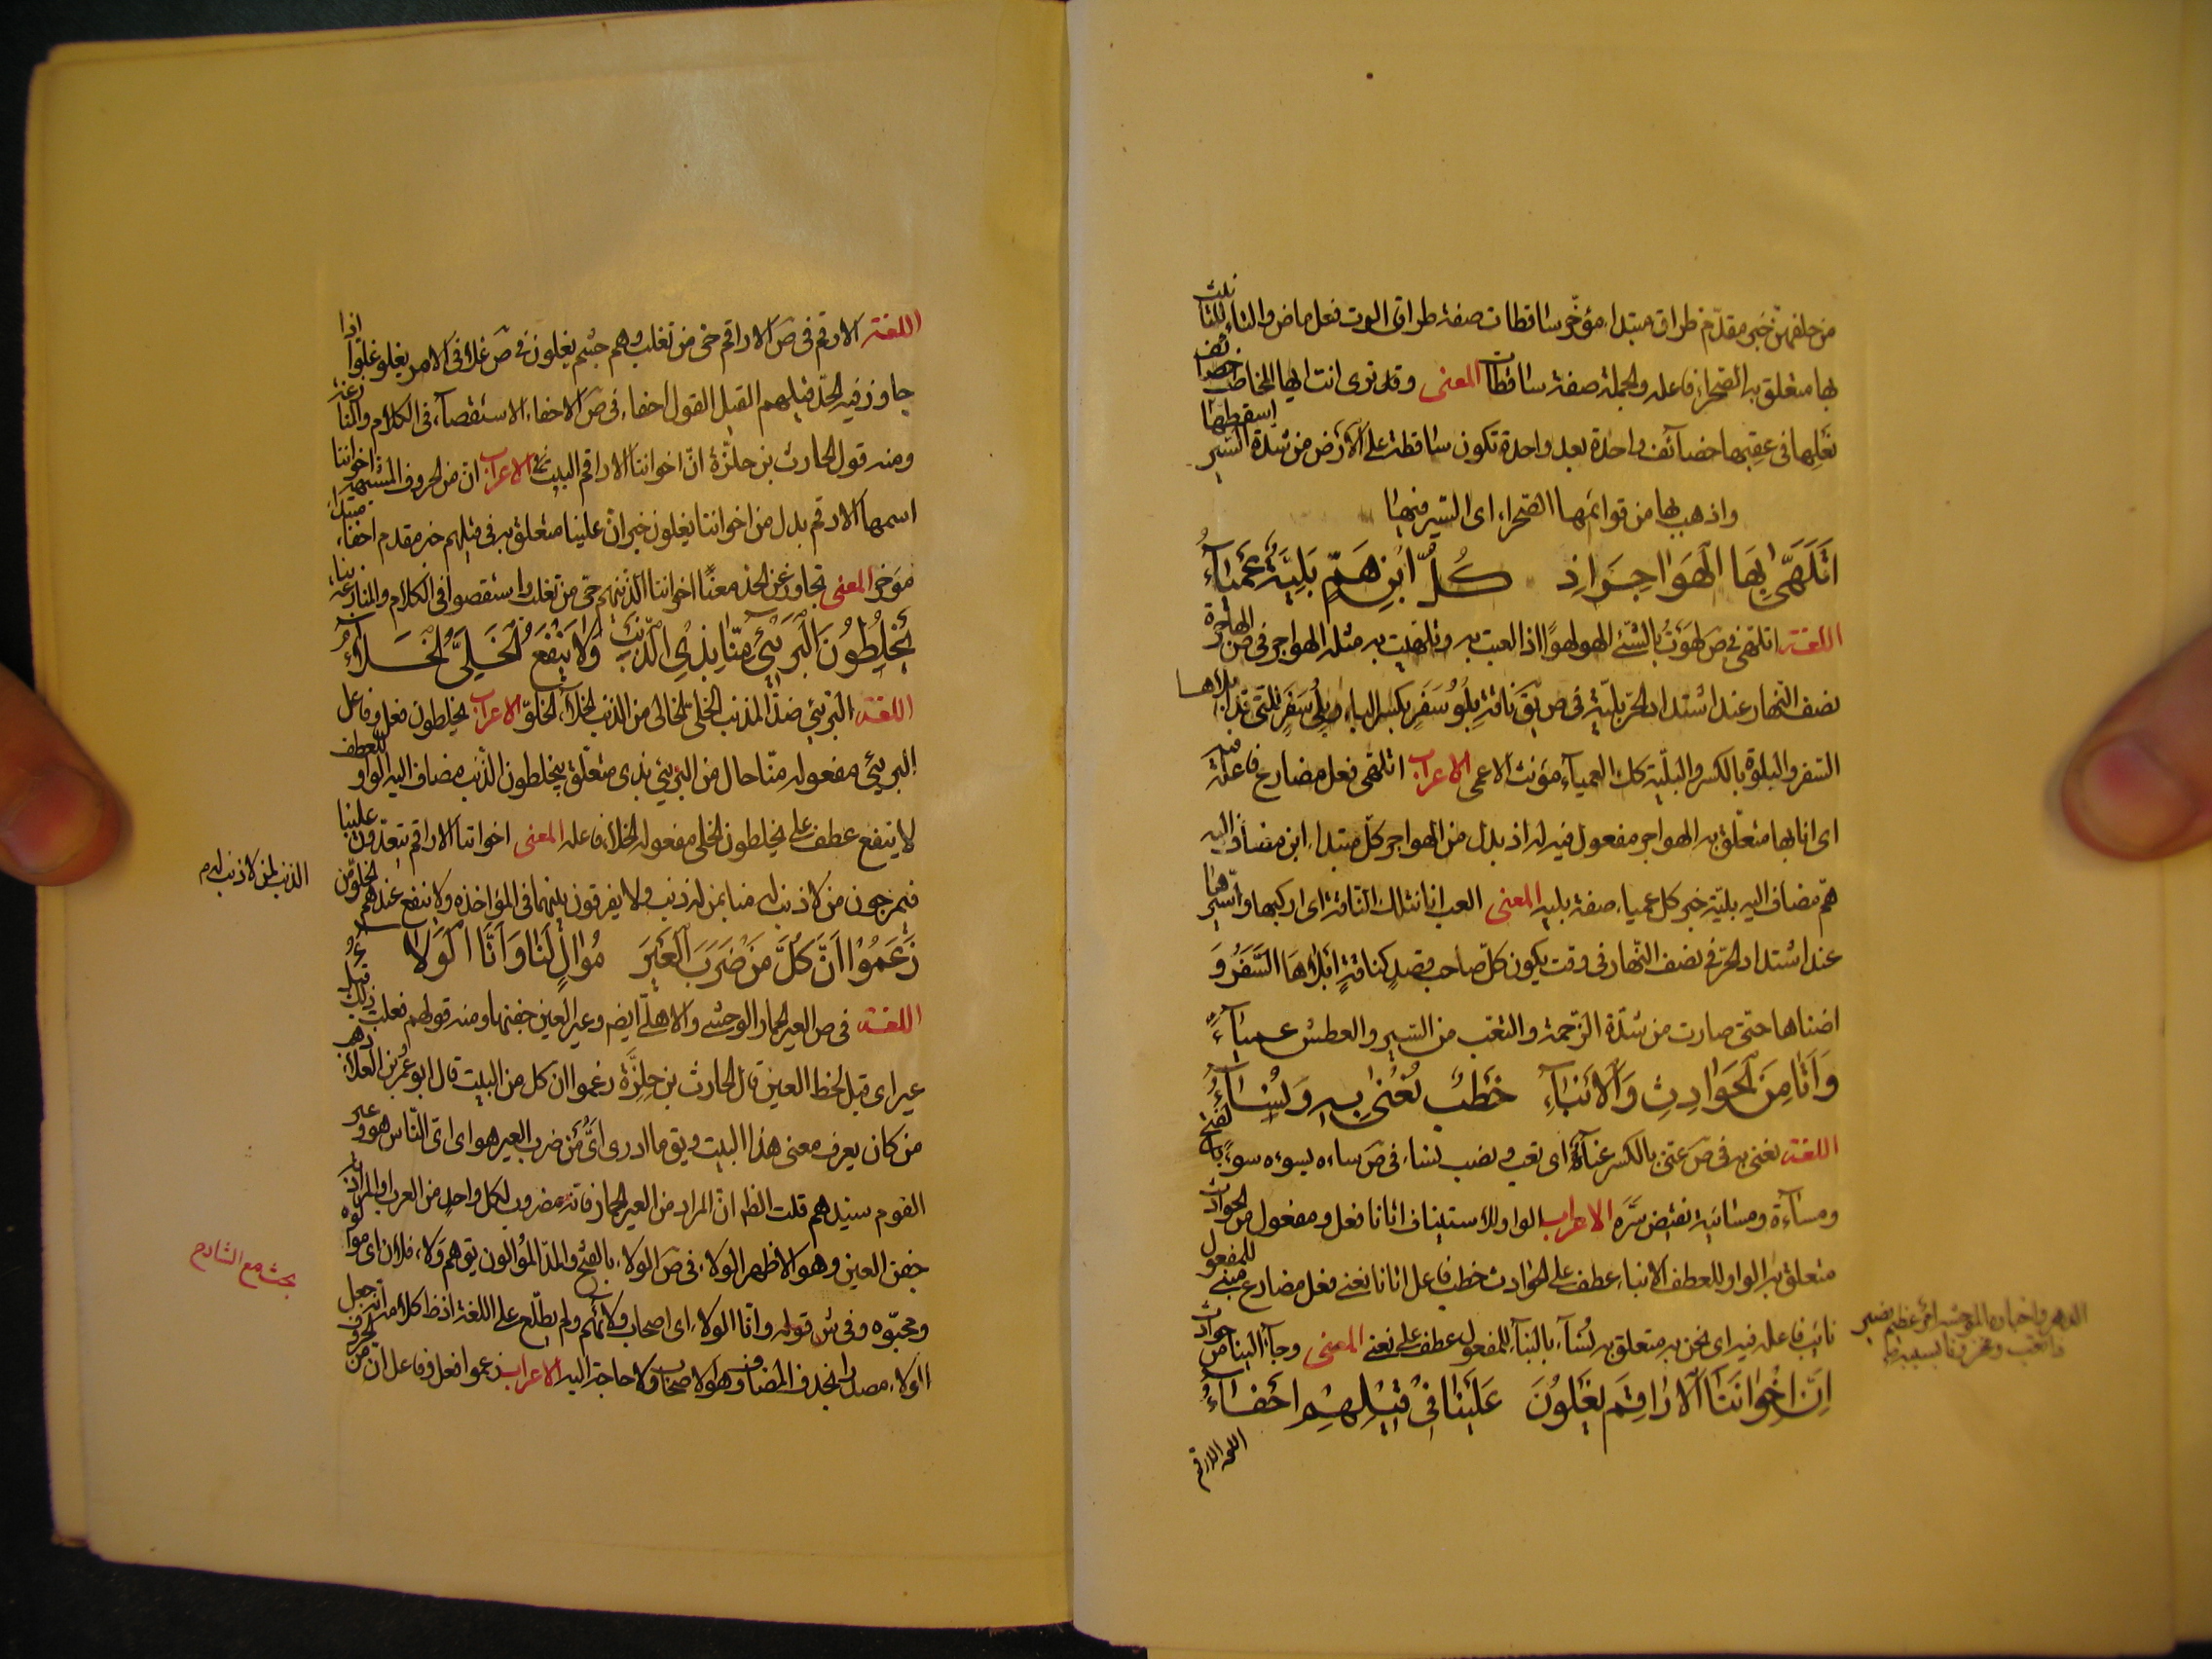 من خلفهن خبر مقدم طراق مبتداء مؤخر ساقطات صفة طراق الوت فعل ماض والتاء للتانيث
بها متعلق به الصحراء فاعله والجملة صفة ساقطات المعنى وقد نرى انت ايها المخاطب خصائف
نعلها في عقبها خصائف واحدة بعد واحدة تكون ساقطة على الارض من شدة السير اسقطها
واذهب بها من قوائمها الصحراء اى السير فيها
اَتَلَهّٰى بِهَا الْهَوَاجِرَ اِذ كُلُّ ابْنِ هَمٍّ بَلِيَّةٌ عَمْيَاءُ
اللغة اتلهى في ص لهوت بالشئ الهو لهوا اذا لعبت به وتلهيت به مثله الهواجر في ص الهاجرة
نصف النهار عند اشتداد الحر بلية في ص يق ناقة بلو سفر بكسر الباء وبلى سفر للتى قد ابلاها
السفر والبلوة بالكسر والبلية كك العمياء مؤنث الاعمى الاعراب اتلهى فعل مضارع فاعله فيه
اى انا بها متعلق به الهواجر مفعول فيه له اذ بدل من الهواجر كل مبتداء ابن مضاف اليه
هم مضاف اليه بلية خبر كل عمياء صفة بلية المعنى العب انا بتلك الناقة اى اركبها واسيرها
عند اشتداد الحر في نصف النهار في وقت يكون كل صاحب قصد كناقة ابلاها السفر و
اضناها حتى صارت من شدة الزحمة والتعب من السير والعطش عمياء
وَاَتَانَا مِنَ الْحَوَادِثِ وَالْاَنْبَاءِ خَطْبٌ نُعْنٰى بِهِ وَنُسَاءُ
اللغة نعنى به في ص عنى بالكسر عناء اى تعب ونصب نساء في ص ساءه يسوءه سوءا بالفتح
ومساءة ومسائية نقيض سره الاعراب الواو للاستيناف اتانا فعل ومفعول من الحوادث
متعلق به الواو للعطف الانباء عطف على الحوادث خطب فاعل اتانا نعنى فعل مضارع مبنى للمفعول
نايب فاعله فيه اى نحن به متعلق به نساء بالبناء للمفعول عطف على نعنى المعنى وجاء الينا من حوادث
الدهر واخباره الموحشة امر عظيم نصير
اِنَّ اِخْوَانَنَا الْاَرَاقِمَ يَغْلُونَ عَلَيْنَا فِيْ قِيْلِهِمْ اِحْفَاءُ
اللغة الارقم
اللغة الارقم في ص الاراقم حى من تغلب وهم جشم يغلون في ص غلا في الامر يغلو غلوا اذا
جاوز فيه الحد قيلهم القيل القول احفاء في ص الاحفاء الاستقصاء في الكلام والمنازعة
ومنه قول الحارث بن حلزة ان اخواننا الاراقم البيت الاعراب ان من الحروف المشبهة اخواننا
اسمها الارقم بدل من اخواننا يغلون خبر ان علينا متعلق به في قيلهم خبر مقدم احفاء مبتداء
مؤخر المعنى تجاوز عن الحد معنا اخواننا الذينهم حى من تغلب واستقصوا في الكلام والمنازعة بنا
يَخْلِطُونَ الْبَرِيْئَ مِنَّا بِذِي الذَّنْبِ وَلَا يَنْفَعُ الْخَلِيَّ الْخَلَاءُ
اللغة البرئ ضد المذنب الخلى الخالى من الذنب الخلاء الخلو الاعراب يخلطون فعل وفاعل
البرئ مفعوله منا حال من البرئ بذى متعلق بيخلطون الذنب مضاف اليه الواو للعطف
لا ينفع عطف على يخلطون الخلى مفعوله الخلاء فاعله المعنى اخواننا الاراقم يتعدون علينا
فيمزجون من لا ذنب له منا بمن له ذنب ولا يفرقون بينهما في المؤاخذه ولا ينفع عندهم الخلو من
الذنب لمن لا ذنب له م
زَعَمُوْا اَنَّ كُلَّ مَنْ ضَرَبَ الْعَيْرَ مُوَالٍ لَنَا وَاَنَّا الْوَلَاءُ
اللغة في ص العير الحمار الوحشى والاهلى ايضم وعير العين جفنها ومنه قولهم فعلت ذلك قبل
عير اى قبل لحظ العين قال الحارث بن حلزة زعموا ان كل من البيت قال ابو عمر بن العلاء ذهب
من كان يعرف معنى هذا البيت ويق ما ادرى اى من ضرب العير هو اى اى الناس هو وعير
القوم سيدهم قلت الظ ان المراد من العير الحمار فانه مضروب لكل واحد من العرب او المراد به
جفن العين وهو الاظهر الولاء في ص الولاء بالفتح والمد الموالون يق هم ولاء فلان اى موالوه
ومحبوه وفي ش قوله وانا الولاء اى اصحاب ولائهم ولم يطلع على اللغة اذ ظ كلامه انه جعل
بحث مع الشارح
الولاء مصدرا بحذف المضاف وهو الاصحاب ولا حاجة اليه الاعراب زعموا فعل وفاعل ان من الحروف